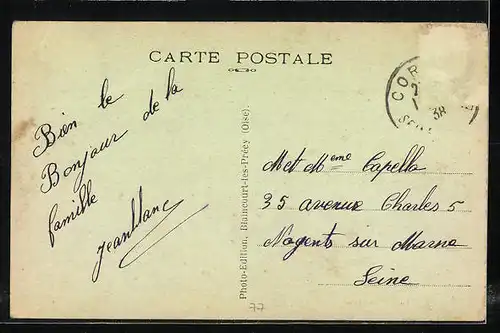 CARTE POSTALE
Bien le
Bonjour de la
famille
Jeanblanc
Photo-Edition, Blaincourt-les-Précy (Oise).
M et Mme Capella
35 avenue Charles 5
Nogents sur Marne
Seine
COR
38
SEINE
77